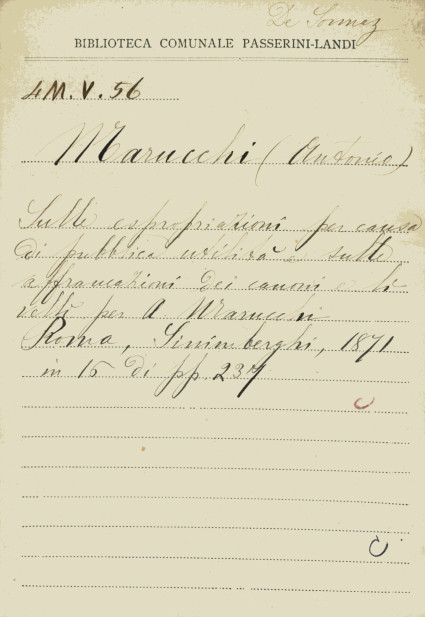 De
BIBLIOTECA COMUNALE PASSERINI-LANDI
4M.V.56
Marucchi (Antonio)
Sulle espropriazioni per causa
di pubblica utilità e sulle
affrancazioni dei canoni e li
velli per A Marucchi
Roma, Sinimberghi, 1871
in 16 di pp. 237
C
C